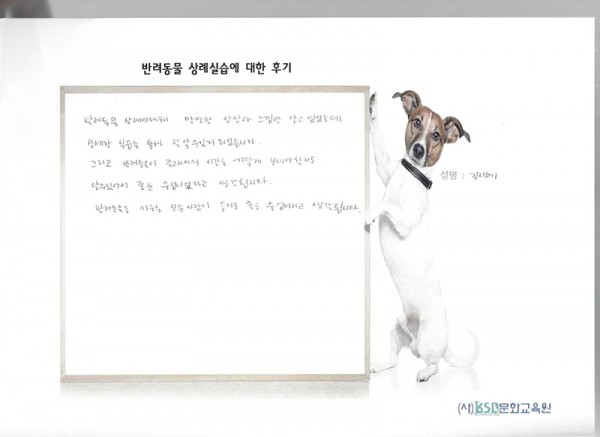 반려동물 상례실습에 대한 후기
반려동물 상례에대해 막연한 상상과 느낌만 갖고 있었는데
상세한 실습을 통해 잘 알수있게 되었습니다.
그리고 반려동물이 시간을 어떻게
알수있어서 좋은 수업이었다고 생각됩니다.
반려동물을 키우는 모든사람이 좋은 수업이라고 생각됩니다.
성명 :
(사)KSD문화교육원